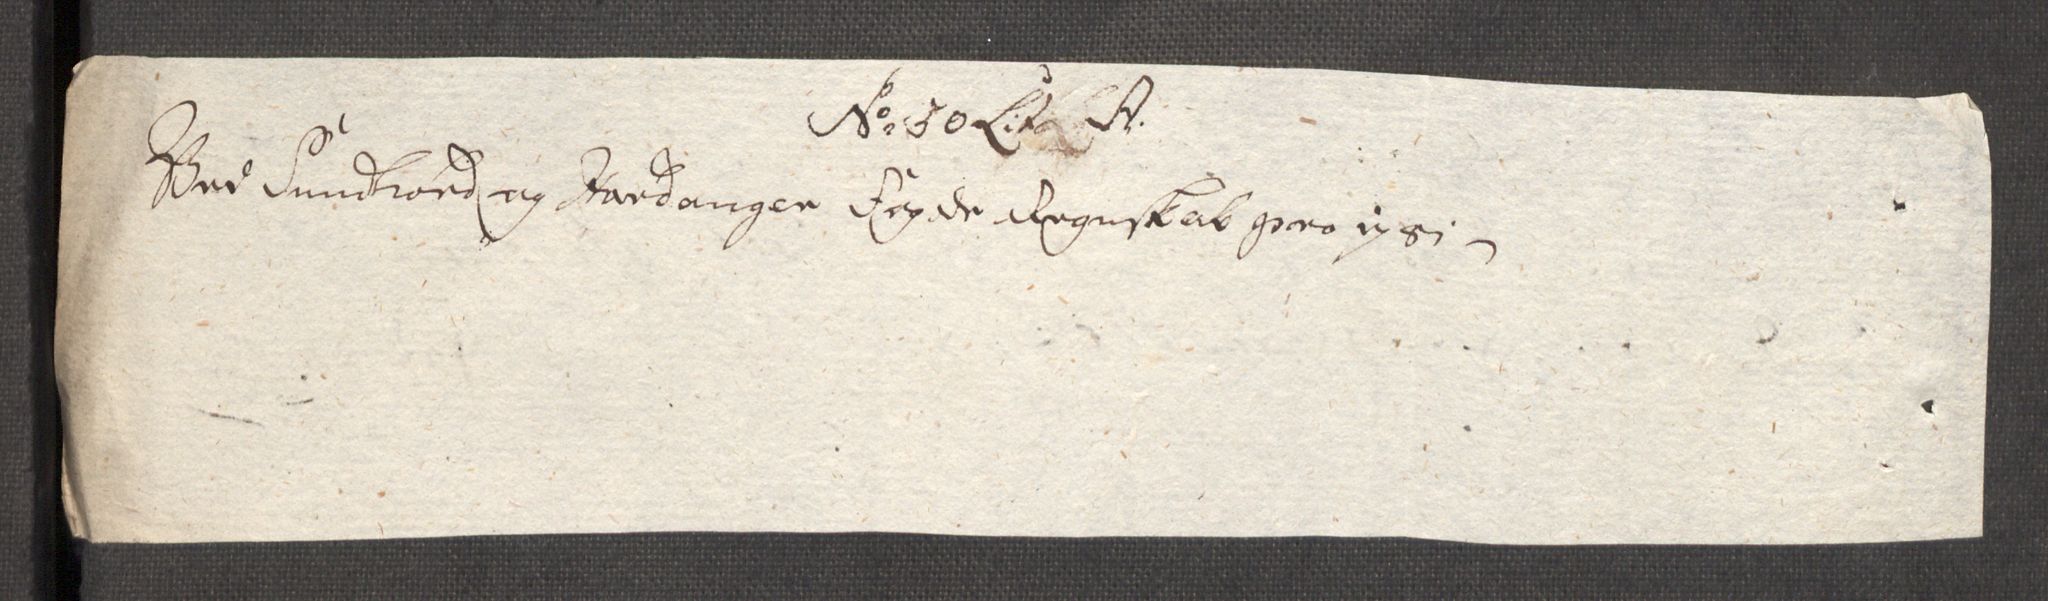 No: 30 Lit A.
Ved Sundhord og Hardanger Fogde Regnskab pro 1781